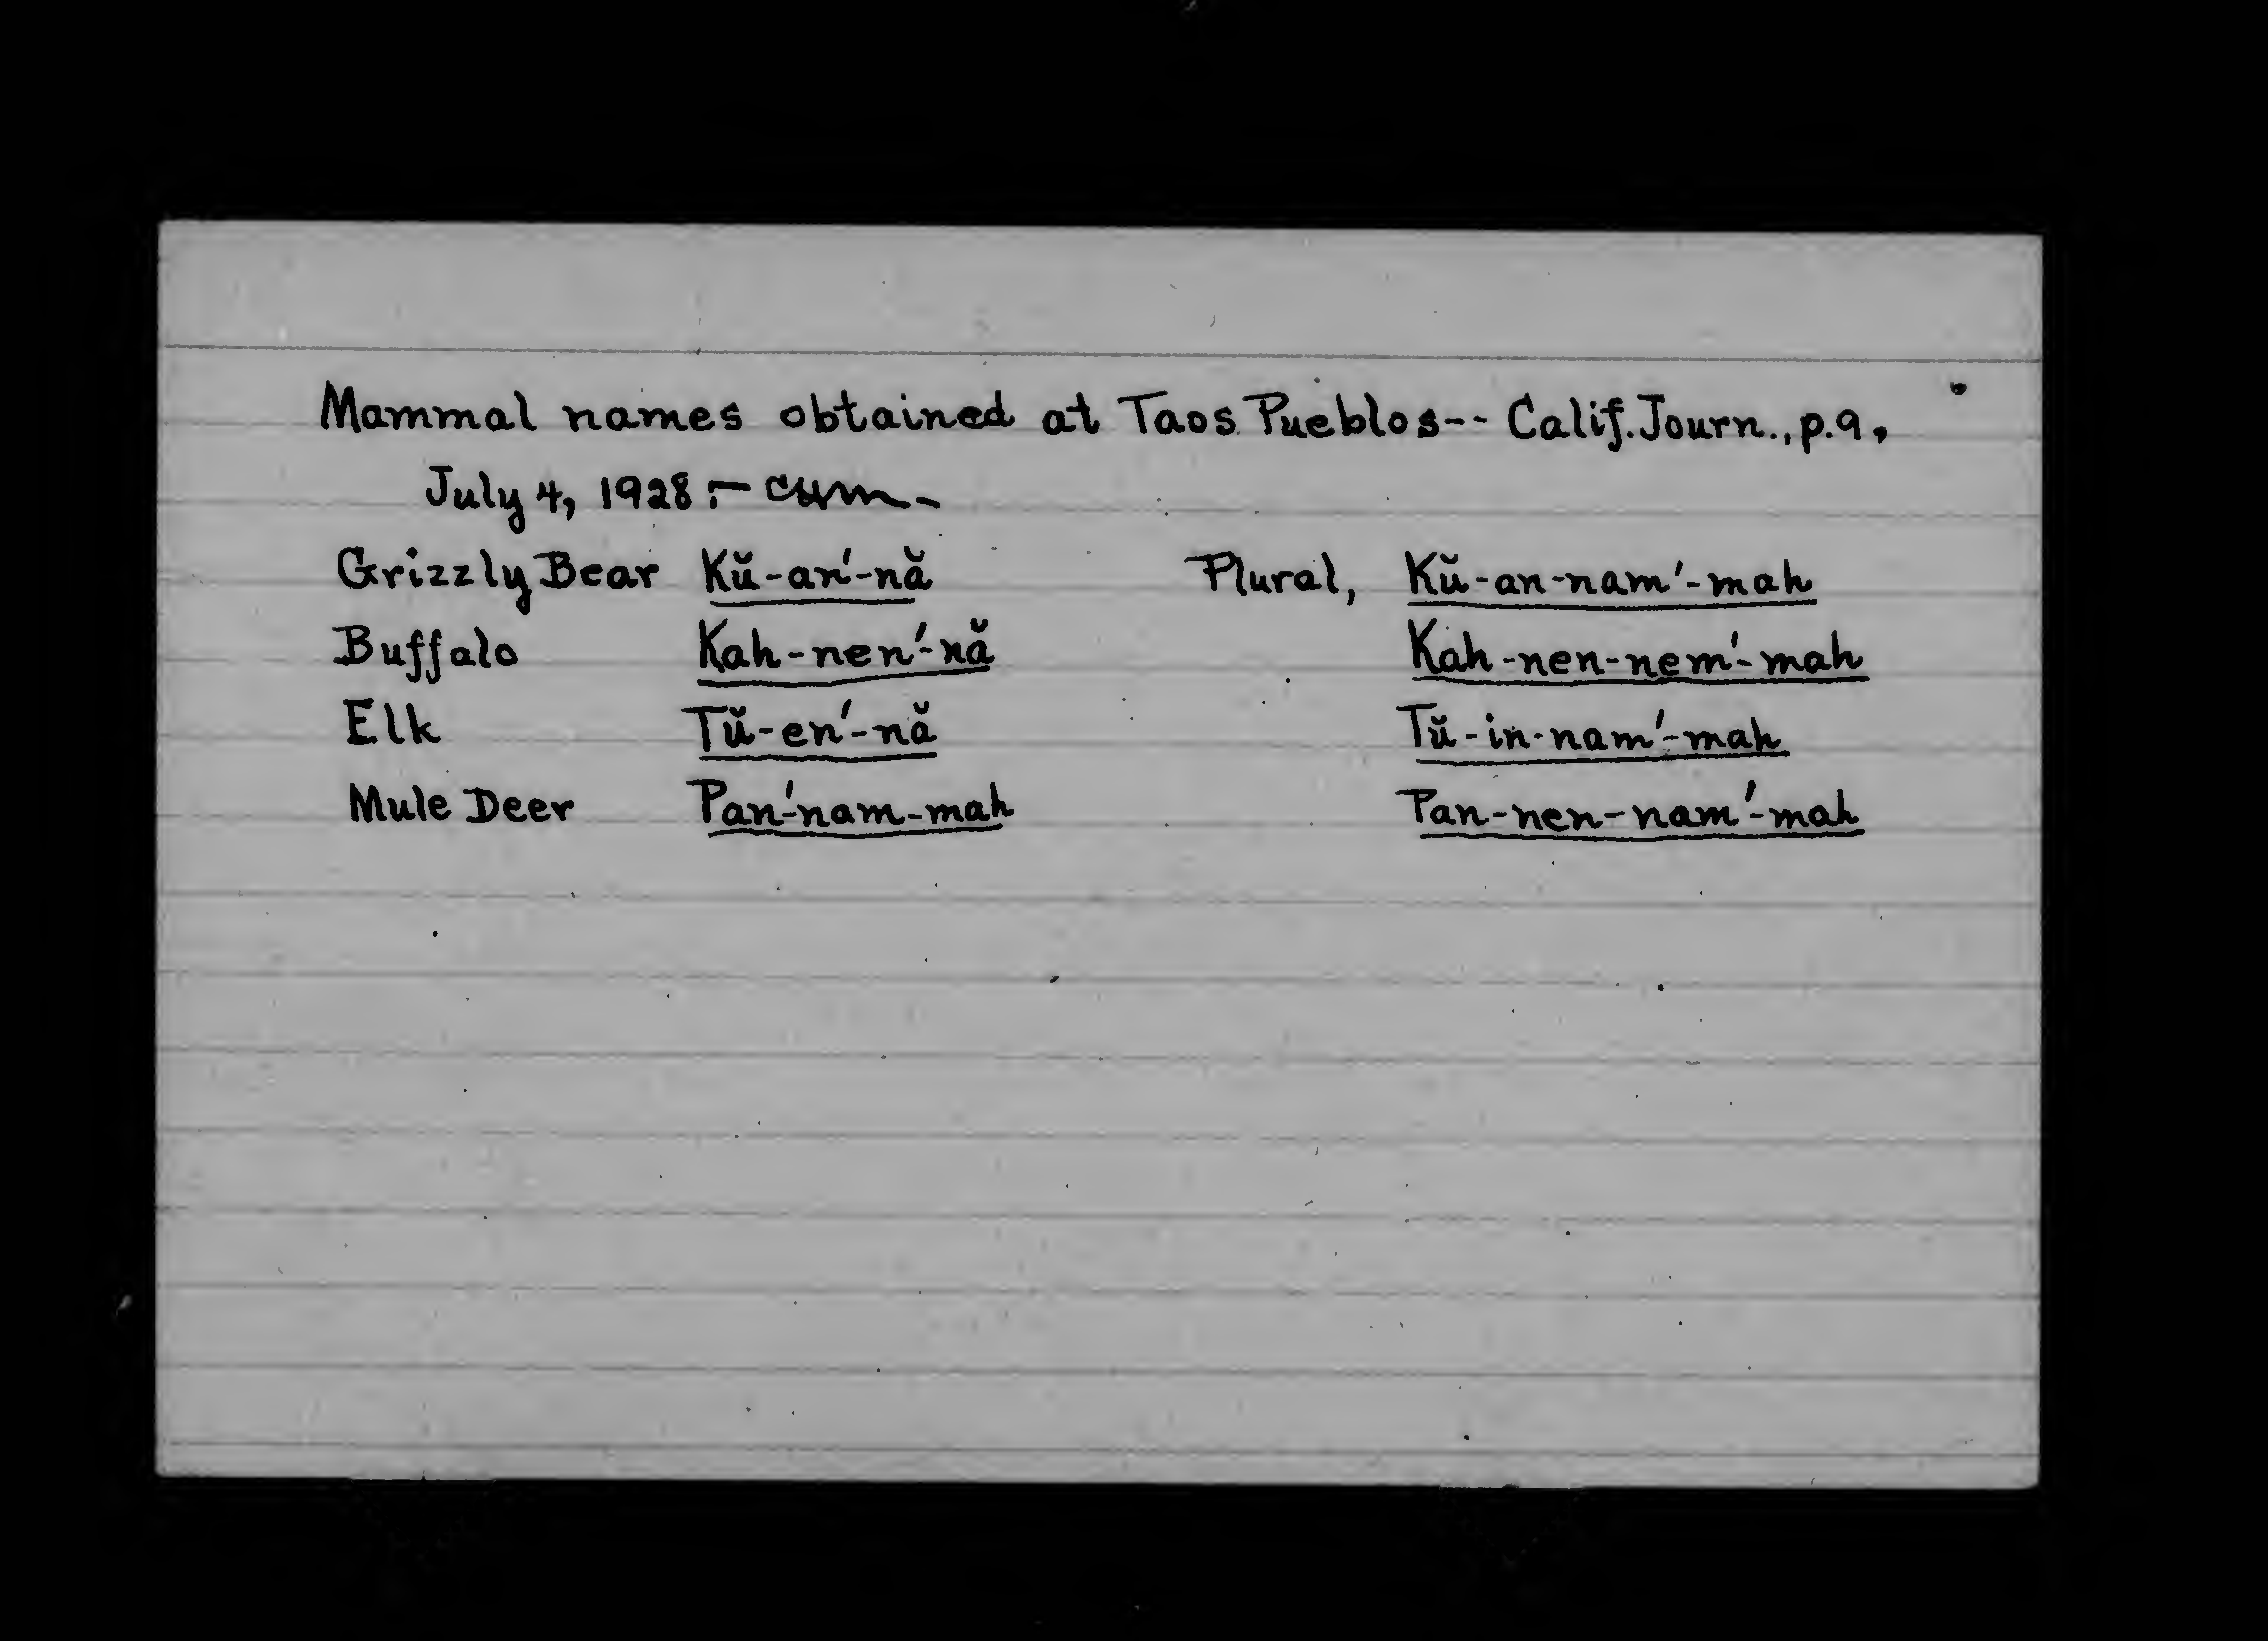 Mammal names obtained at Taos Pueblos-- Calif. Journ., p.9,
July 4, 1928.— CHM—
Grizzly Bear Kŭ-an'-nă Plural, Kŭ-an-nam'-mah
Buffalo Kah-nen'-nă Kah-nen-nem'-mah
Elk Tŭ-en'-nă Tŭ-in-nam'-mah
Mule Deer Pan'-nam-mah Pan-nen-nam'-mah